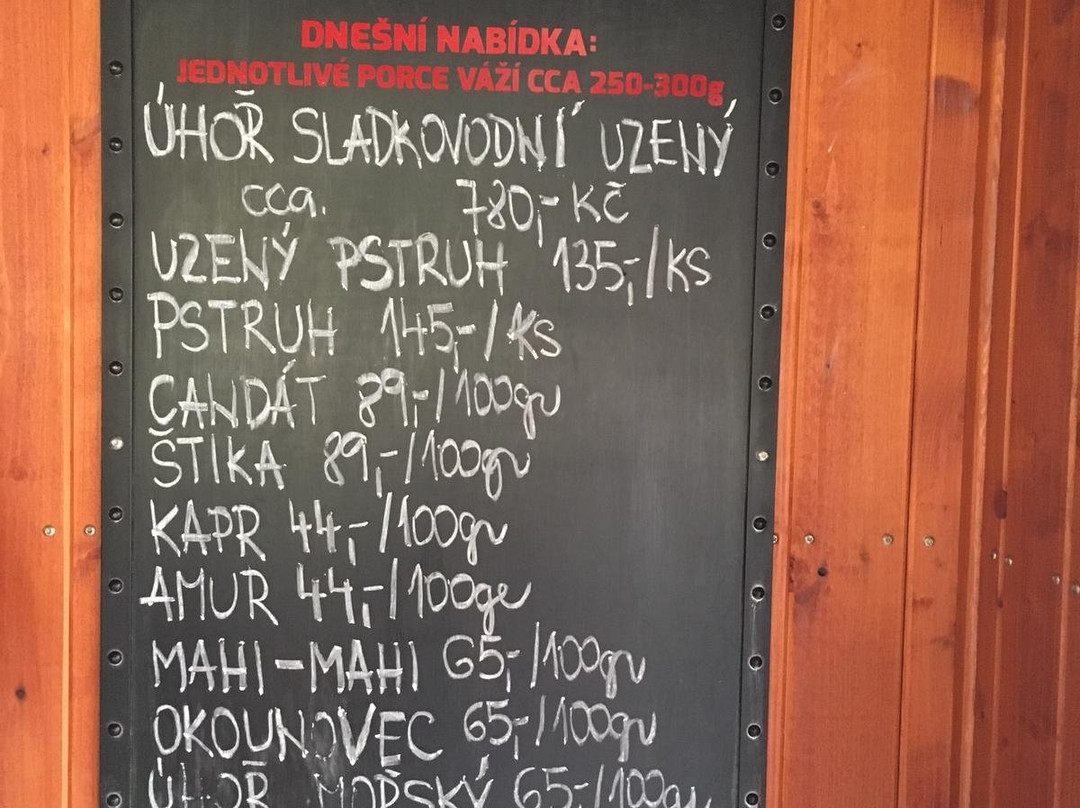 DNEŠNÍ NABÍDKA:
JEDNOTLIVÉ PORCE VÁŽÍ CCA 250-300g
ÚHOŘ SLADKOVODNÍ UZENÝ
cca. 780,- Kč
UZENÝ PSTRUH 135,-/KS
PSTRUH 145,-/KS
CANDÁT 89,-/100gr
ŠTIKA 89,-/100gr
KAPR 44,-/100gr
AMUR 44,-/100gr
MAHI-MAHI 65,-/100gr
OKOUNOVEC 65,-/100gr
ÚHOŘ MOŘSKÝ 65,-/100gr